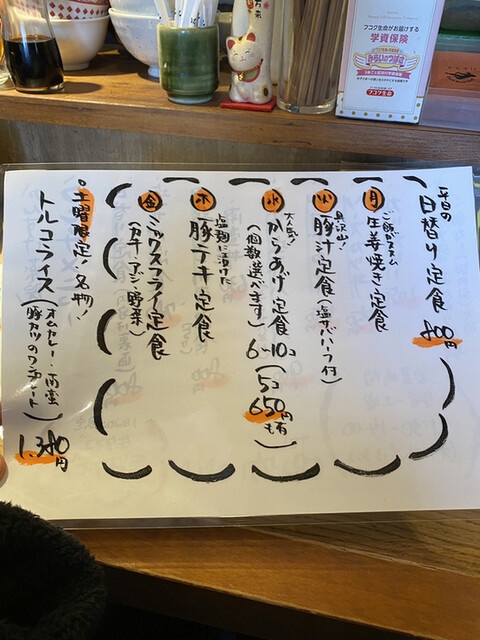 平日の
日替り定食 800円
月 ご飯がススム
生姜焼き定食
火 具沢山!
豚汁定食(塩サバハーフ付)
水 大人気!
からあげ定食 6〜10コ
(個数選べます)
5コ
650円
も有
木 塩麹に漬けた
豚テキ定食
金 ミックスフライ定食
(カキ・アジ・野菜)
土曜限定・名物!
トルコライス(オムカレー・
豚カツのワンプレート)
1,380円
フコク生命がお届けする
学資保険
みらいのつばさ
フコク生命